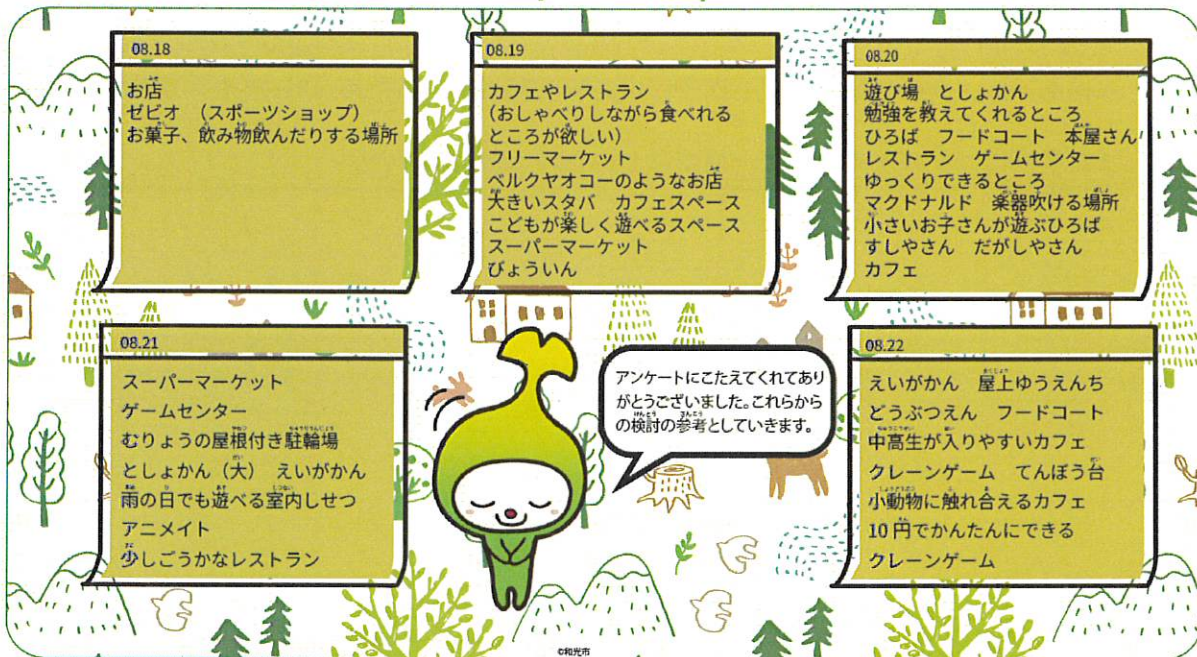 08.18
お店
ゼビオ （スポーツショップ）
お菓子、飲み物飲んだりする場所
08.19
カフェやレストラン
(おしゃべりしながら食べれる
ところが欲しい)
フリーマーケット
ベルクヤオコーのようなお店
大きいスタバ　カフェスペース
こどもが楽しく遊べるスペース
スーパーマーケット
びょういん
08.20
遊び場　としょかん
勉強を教えてくれるところ
ひろば　フードコート　本屋さん
レストラン　ゲームセンター
ゆっくりできるところ
マクドナルド　楽器吹ける場所
小さいお子さんが遊ぶひろば
すしやさん　だがしやさん
カフェ
08.21
スーパーマーケット
ゲームセンター
むりょうの屋根付き駐輪場
としょかん（大）　えいがかん
雨の日でも遊べる室内しせつ
アニメイト
少しごうかなレストラン
アンケートにこたえてくれてあり
がとうございました。これらから
の検討の参考としていきます。
08.22
えいがかん　屋上ゆうえんち
どうぶつえん　フードコート
中高生が入りやすいカフェ
クレーンゲーム　てんぼう台
小動物に触れ合えるカフェ
10 円でかんたんにできる
クレーンゲーム
©和光市